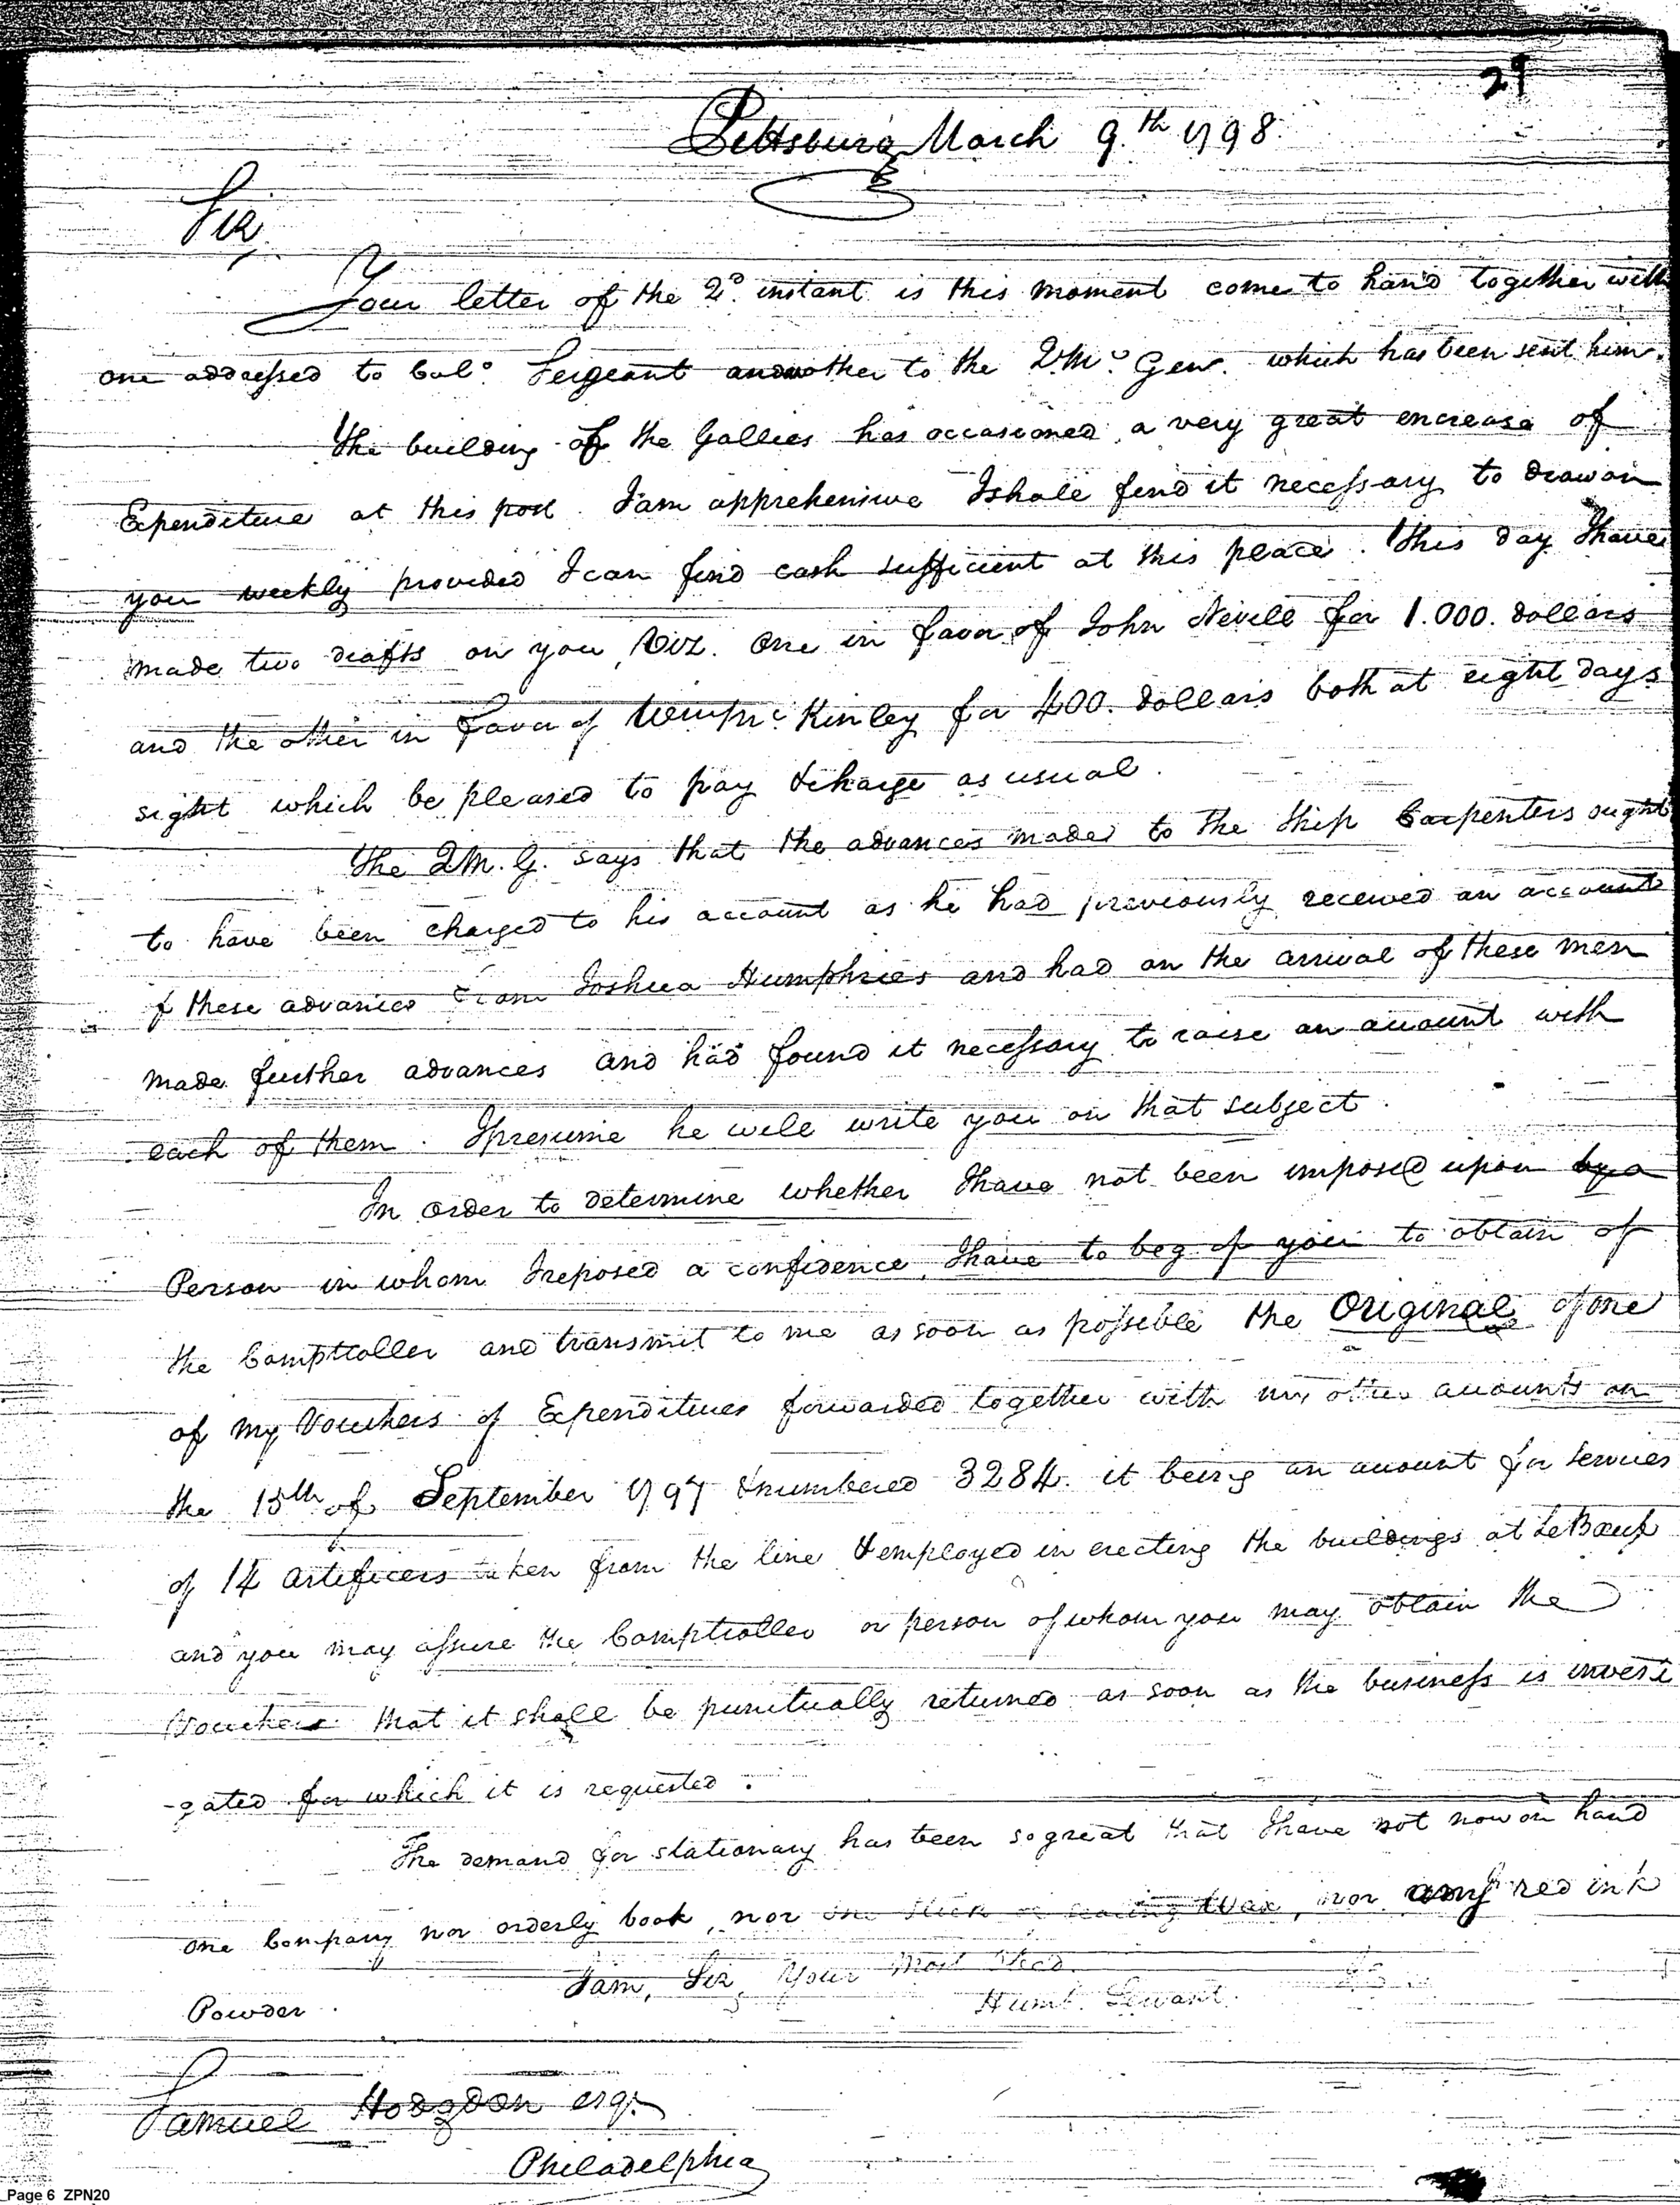 29
Pittsburg March 9.th 1798.
Sir,
Your letter of the 2d. instant is this moment come to hand together with
one addressed to Colo. Sergeant another to the Q.Mr. Genl. which has been sent him.
The building of the Gallies has occasioned a very great encrease of
Expenditure at this post. I am apprehensive I shall find it necessary to draw on
you weekly provided I can find cash sufficient at this place. This day I have
made two drafts on you, Viz. One in favor of John Nevill for 1.000. dollars
and the other in favor of McKinley for 400. dollars both at eight days
sight which be pleased to pay & charge as usual.
The Q.M.G. says that the advances made to the Ship Carpenters ought
to have been charged to his account as he had previously received an account
of these advances from Joshua Humphries and had on the arrival of these men
made further advances and had found it necessary to raise an account with
each of them. I presume he will write you on that subject.
In order to determine whether I have not been imposed upon by a
Person in whom I reposed a confidence, I have to beg of you to obtain of
the Comptroller and transmit to me as soon as possible the Original of one
of my Vouchers of Expenditures forwarded together with my other accounts on
the 15th of September 1797 & numbered 3284. it being an account for services
of 14 artificers taken from the line & employed in erecting the buildings at LeBoeuf
and you may assure the Comptroller or person of whom you may obtain the
Voucher that it shall be punctually returned as soon as the business is investi
-gated for which it is requested.
The demand for stationary has been so great that I have not now on hand
one Company nor orderly book, nor one stick of sealing Wax, nor any red ink
Powder.
I am, Sir, Your Most Obed.
Humb. Servant.
Samuel Hodgdon esqr.
Philadelphia
Page 6 ZPN20